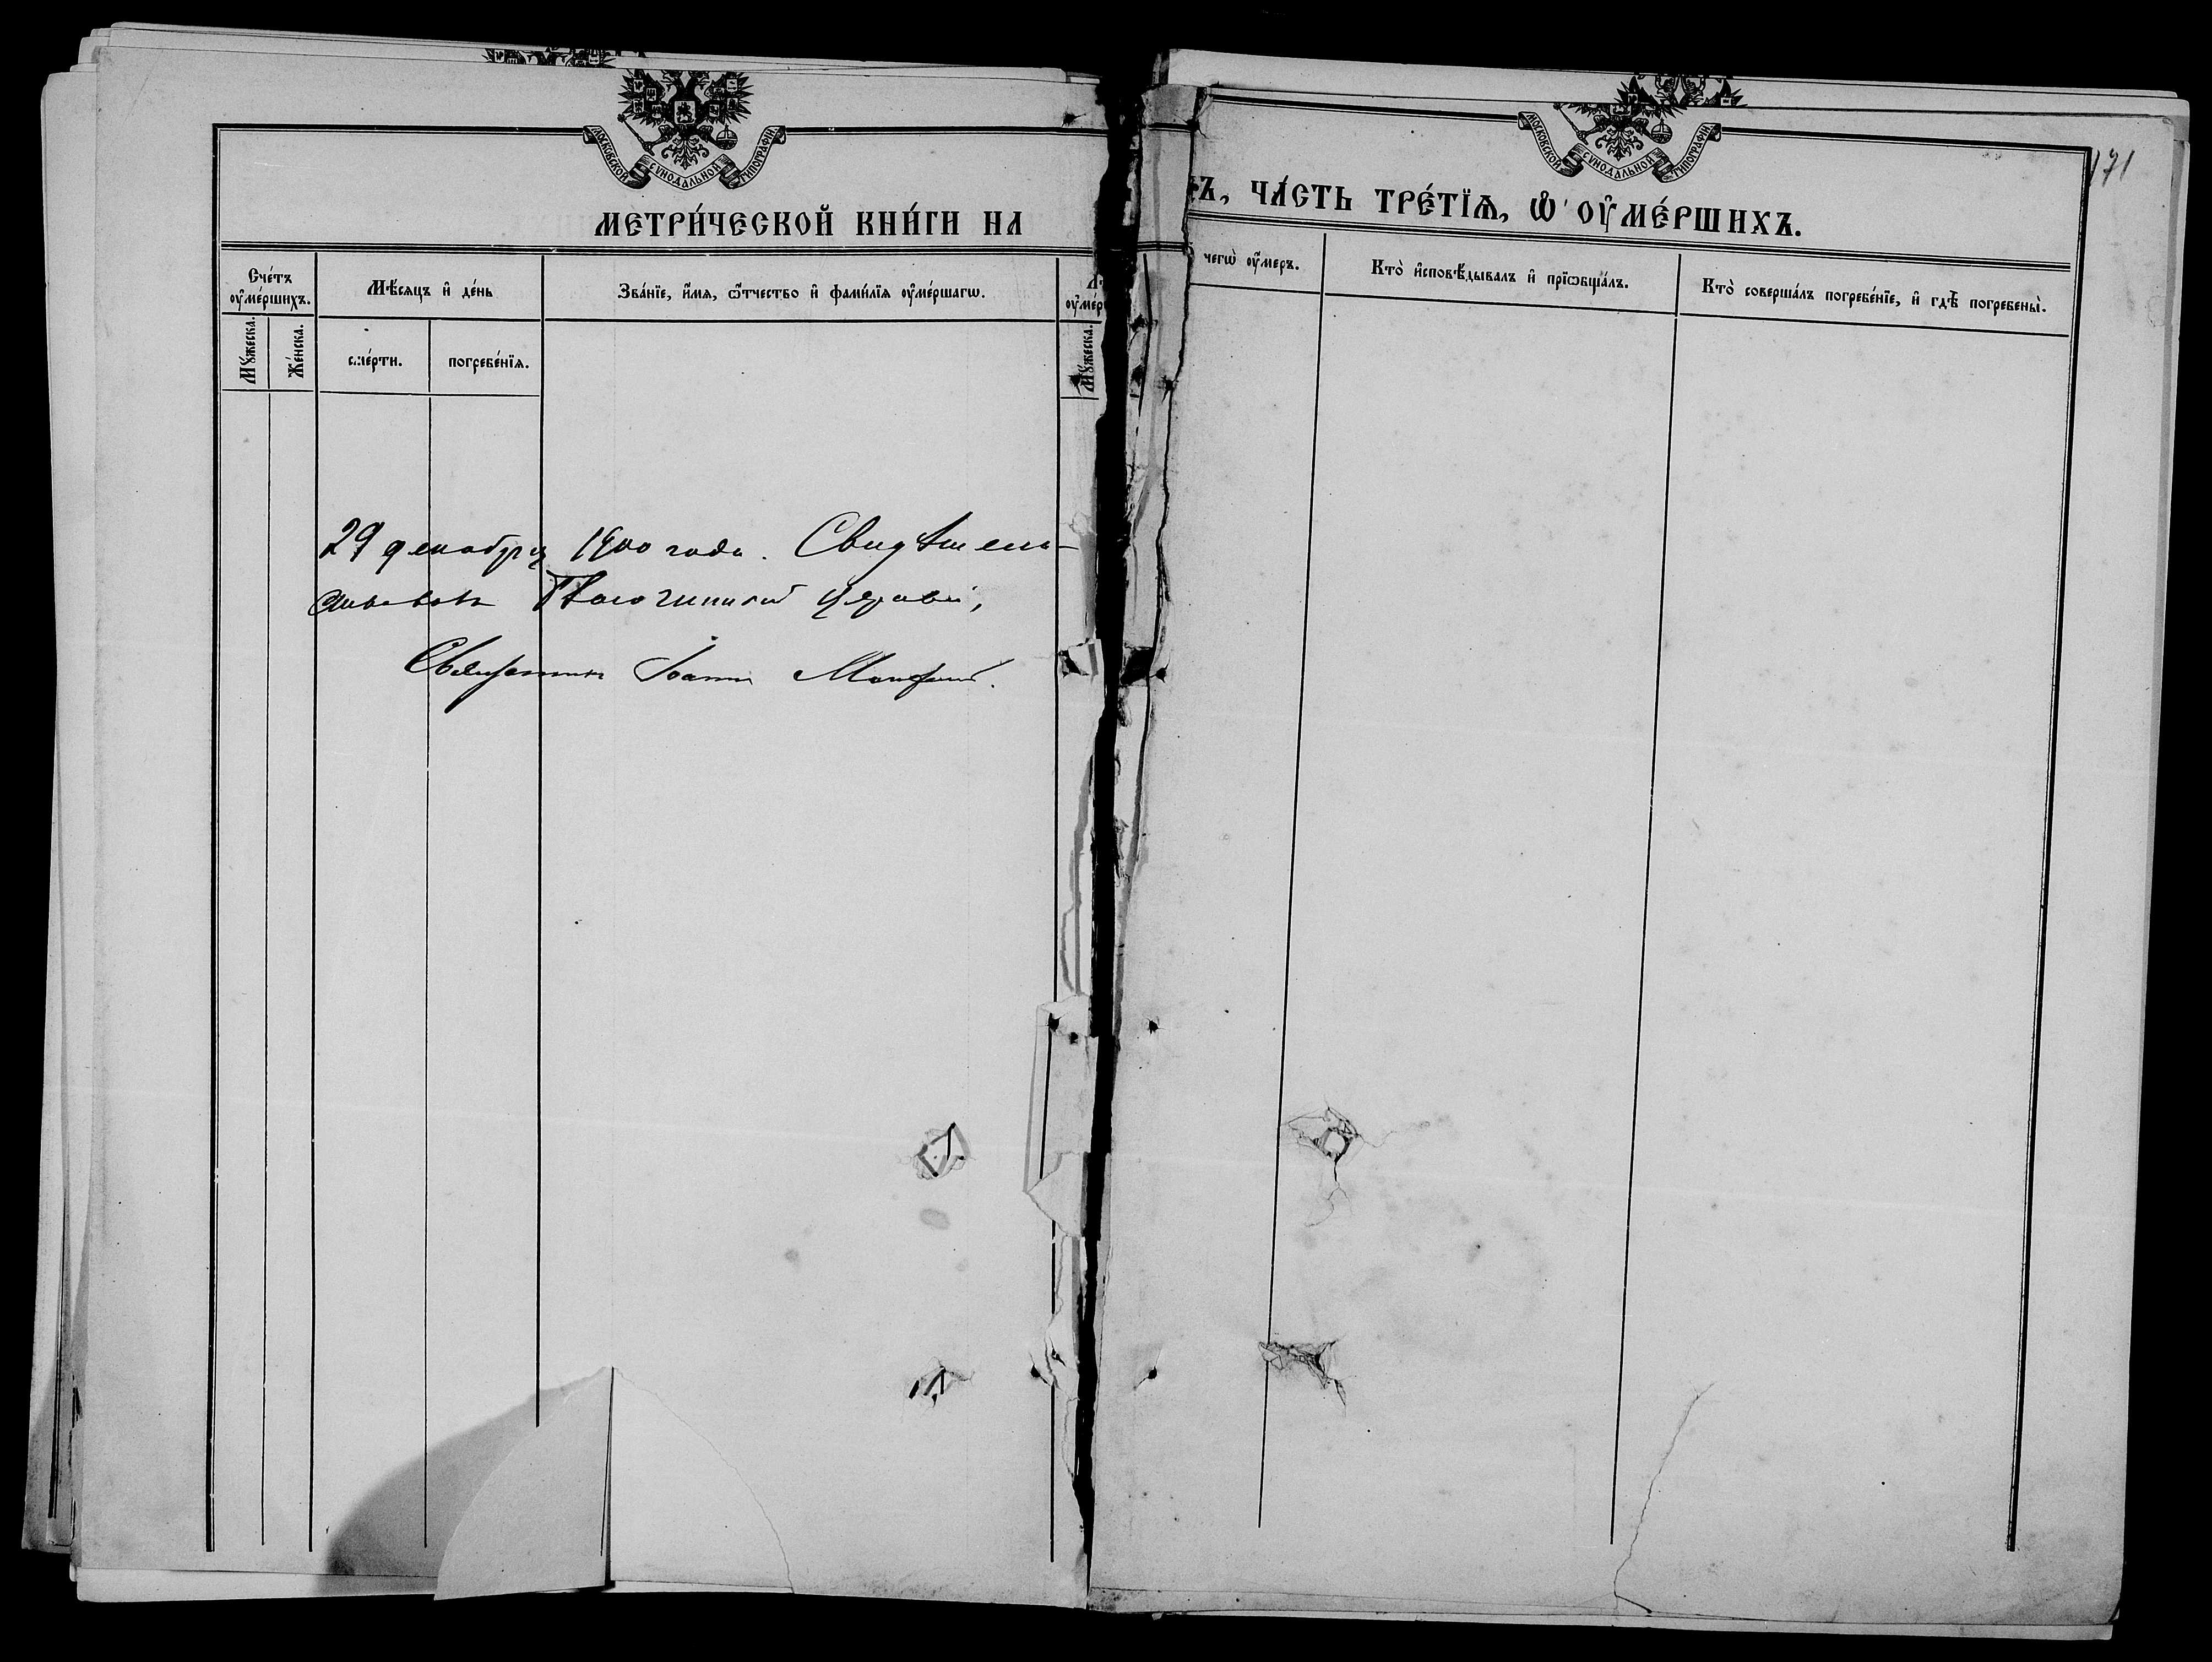 МОСКОВСКОЙ СУНОДАЛЬНОЙ ТИПОГРАФІИ
МЕТРИ́ЧЕСКОЙ КНИ́ГИ НА
Сче́тъ ᲂу҆ме́ршихъ.
Мꙋ́жеска.
Же́нска.
Мѣ́сяцъ и҆ де́нь
сме́рти.
погребе́нїѧ.
Зва́нїе, и҆́мѧ, ѻ҆́тчество и҆ фами́лїѧ ᲂу҆ме́ршагѡ.
Мꙋ́жеска.
29 декабря 1900 года. Свидѣтель-
ствовалъ церкви,
Священникъ Іоаннъ
МОСКОВСКОЙ СУНОДАЛЬНОЙ ТИПОГРАФІИ
171
ЧА́СТЬ ТРЕ́ТЇѦ, Ѡ҆ ОУ҆МЕ́РШИХЪ.
чегѡ̀ ᲂу҆́меръ.
Кто̀ и҆сповѣ́дывалъ и҆ прїѡбща́лъ.
Кто̀ соверша́лъ погребе́нїе, и҆ гдѣ̀ погребены̀.